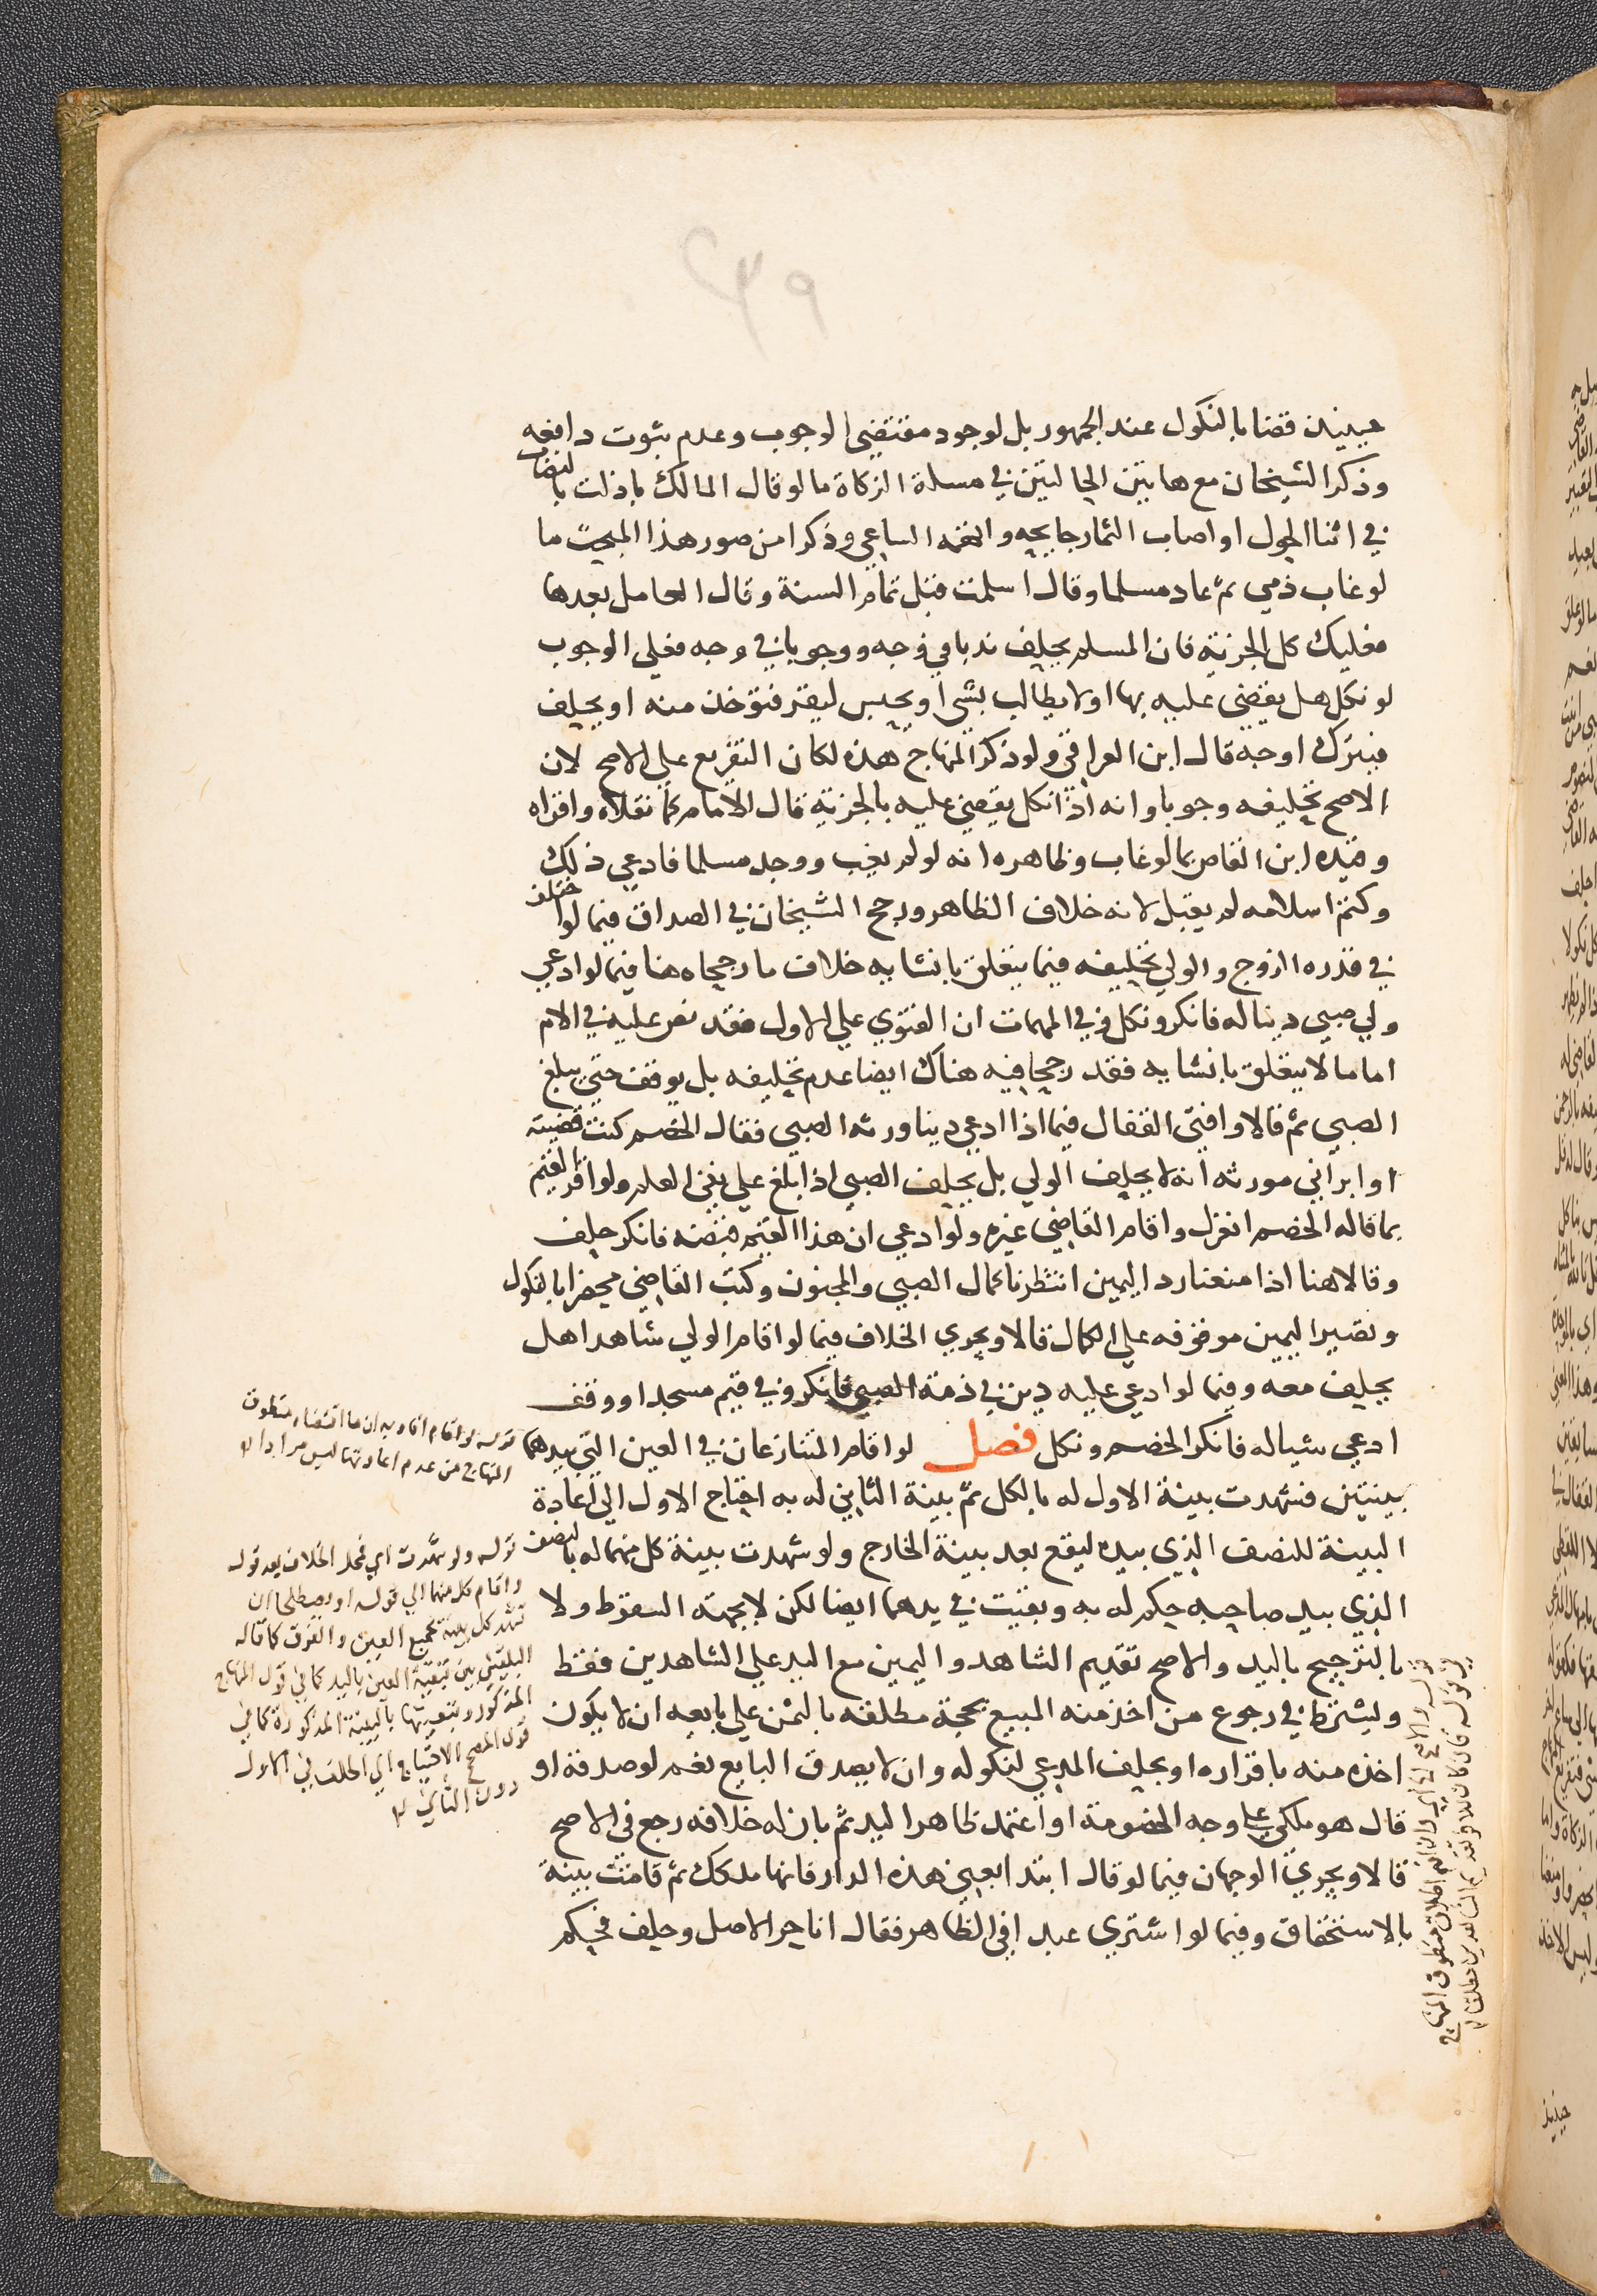 ٢٣٩
حينيذ قضا بالنكول عند الجمهور بل لوجود مقتضى الوجوب وعدم ثبوت دافعه
وذكر الشيخان مع هاتين الحالتين في مسلة الزكاة ما لو قال المالك بادلت بالنصاب
في اثنا الحول او اصاب الثمار جايحه واتهمه الساعي وذكرا من صور هذا المبحث ما
لو غاب ذمي ثم عاد مسلما وقال اسلمت قبل تمام السنة وقال العامل بعدها
فعليك كل الجزية فان المسلم يحلف ندبا في وجه ووجوبا في وجه فعلي الوجوب
لو نكل هل يقضي عليه بها او لا يطالب بشي او يحبس ليقر فتوخذ منه او يحلف
فيترك اوجه قال ابن العراقي ولو ذكر المنهاج هذه لكان التفريع علي الاصح لان
الاصح تحليفه وجوبا وانه اذا نكل يقضي عليه بالجزية قال الامام كما نقلاه واقراه
وقيده ابن القاص بما لو غاب وظاهره انه لو لم يغب ووجد مسلما فادعي ذلك
وكتم اسلامه لم يقبل لانه خلاف الظاهر ورجح الشيخان في الصداق فيما لو اختلف
في قدره الزوج والولي تحليفه فيما يتعلق بانشايه خلاف ما رجحاه هنا فيما لو ادعي
ولي صبي دينا له فانكر ونكل وفي المهمات ان الفتوي علي الاول فقد نص عليه في الام
اما ما لا يتعلق بانشايه فقد رجحا فيه هناك ايضا عدم تحليفه بل يوقف حتي يبلغ
الصبي ثم قالا وافتي القفال فيما اذا ادعي دينا ورثه الصبي فقال الخصم كنت قضيته
او ابراني مورثه انه لا يحلف الولي بل يحلف الصبي اذا بلغ علي نفي العلم ولو اقر القيم
بما قاله الخصم انعزل واقام القاضي غيره ولو ادعي ان هذا القيم قبضه فانكر حلف
وقالا هنا اذا منعنا رد اليمين انتظرنا كمال الصبي والمجنون وكتب القاضي محضرا بالنكول
وتصير اليمين موقوفه علي الكمال قالا ويجري الخلاف فيما لو اقام الولي شاهدا هل
يحلف معه وفيما لو ادعي عليه دين في ذمة الصبي فانكر وفي قيم مسجد او وقف
ادعي شيا له فانكر الخصم ونكل فصل لو اقام المتنازعان في العين التي بيدهما
بينتين فشهدت بينة الاول له بالكل ثم بينة الثاني له به احتاج الاول الي اعادة
البينة للنصف الذي بيده ليقع بعد بينة الخارج ولو شهدت بينة كل منهما له بالنصف
الذي بيد صاحبه حكم له به وبقيت في يدهما ايضا لكن لا بجهة السقوط ولا
بالترجيح باليد والاصح تقديم الشاهد واليمين مع اليد علي الشاهدين فقط
ويشترط في رجوع من اخذ منه المبيع بحجة مطلقه بالثمن علي بايعه ان لا يكون
اخذه منه باقراره او بحلف المدعي لنكوله وان لا يصدق البايع نعم لو صدقه او
قال هو ملكي علي وجه الخصومة او اعتمد ظاهر اليد ثم بان له خلافه رجع في الاصح
قالا ويجري الوجهان فيما لو قال ابتدا بعني هذه الدار فانها ملكك ثم قامت بينة
بالاستحقاق وفيما لو اشتري عبدا في الظاهر فقال انا حر الاصل وحلف فحكم
قوله لو اقام افاد به ان ما اقتضاه منطوق
المنهاج من عدم اعادتها ليس مرادا
قوله ولو شهدت اي فمحل الخلاف بعد قوله
واقام كل منهما الي قوله او يصطلحا ان
تشهد كل بينة بجميع العين والفرق كما قاله
البلقيني بين تبقية العين باليد كما في قول المنهاج
المذكور وتبقيتها بالبينة المذكورة كما في
قول المصح الاحتياج الي الحلف في الاول
دون الثاني